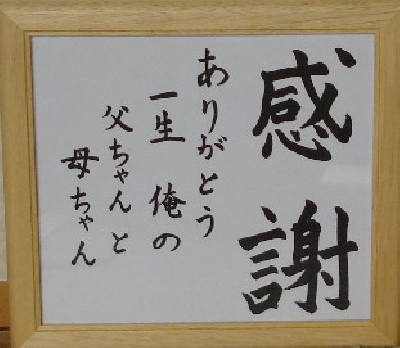 感謝
ありがとう
一生 俺の
父ちゃんと
母ちゃん